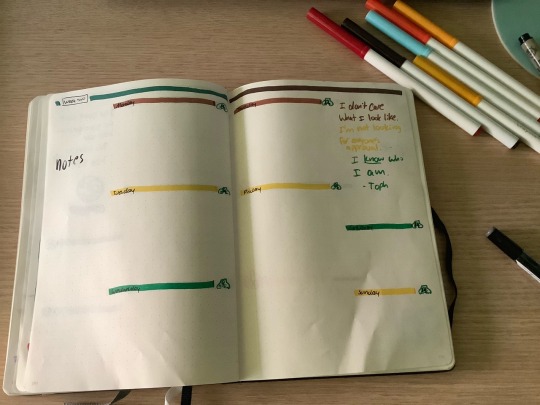 Monday
Notes
Tuesday
Wednesday
I don't care
What I look like.
I'm not looking
for anyones
approval.
I know who
I am.
- Toph
Friday
Sunday